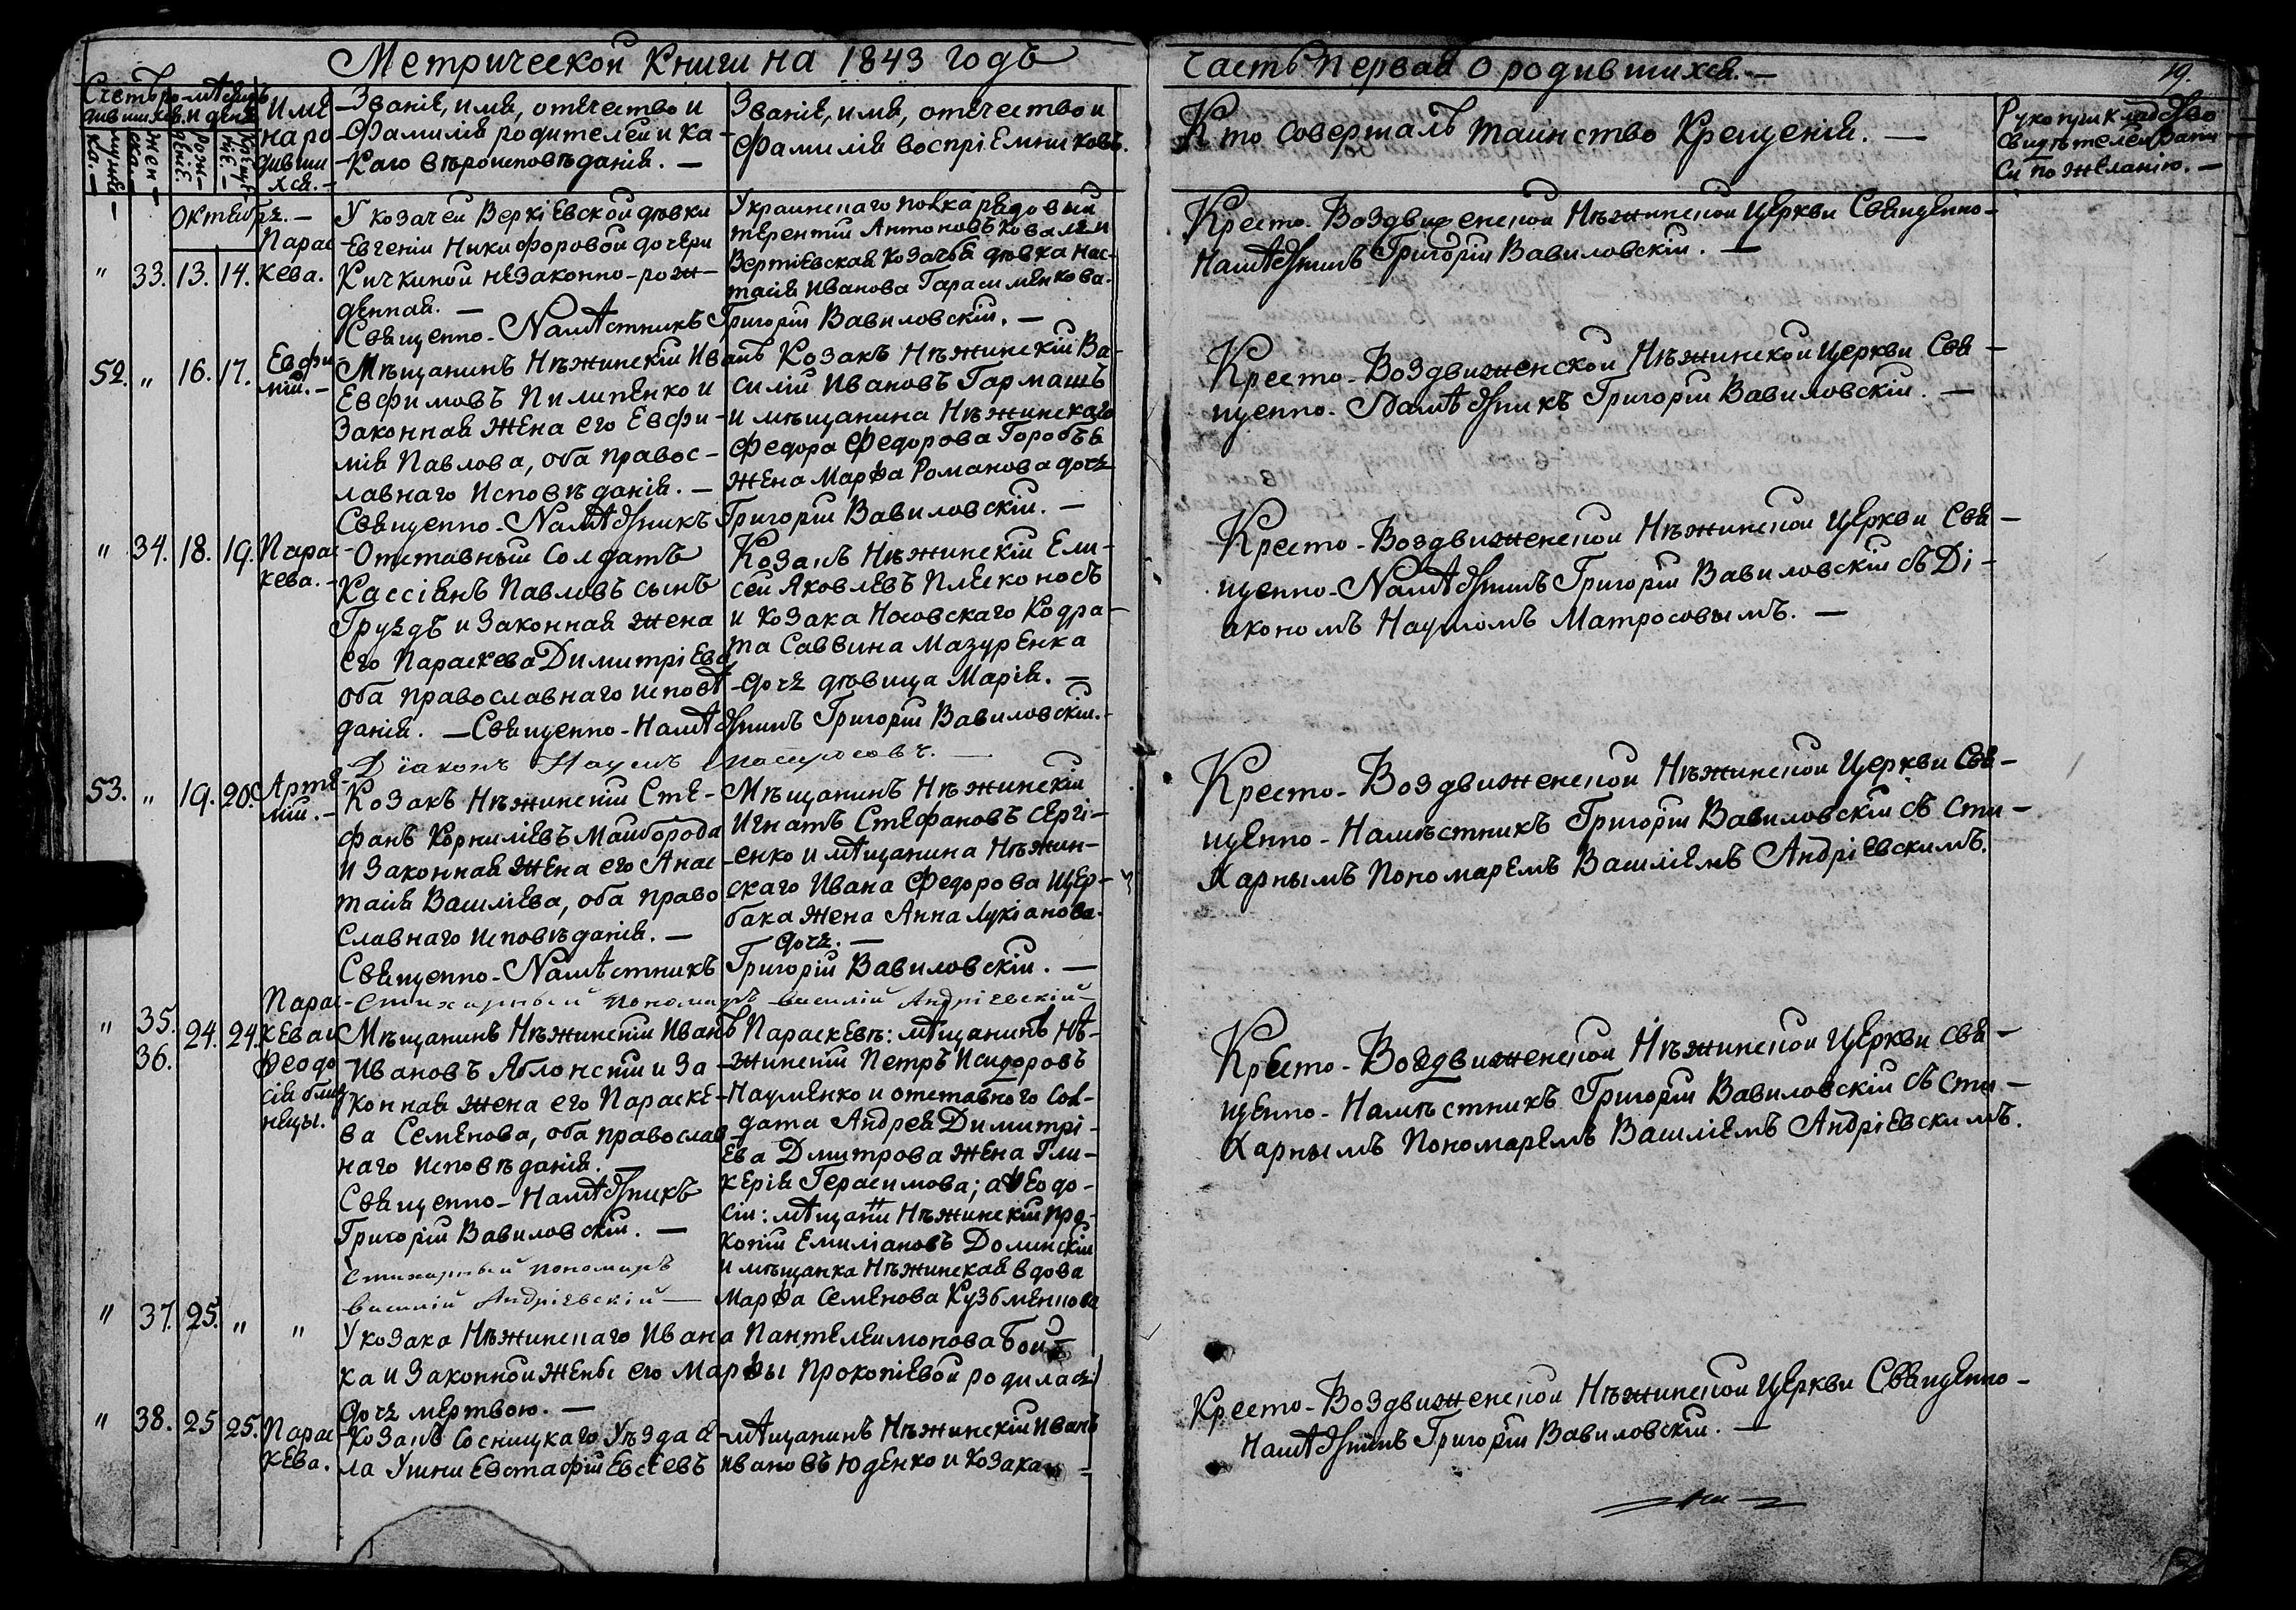 Метрической Книги на 1843 годъ
Часть Первая О родившихся. —
19.
Счетъ ро-
дившихся.
Мѣсяцъ
и день
муже-
ска. —
жен-
ска. —
Рож-
деніе.
Креще-
ніе. —
Име
на ро
дивши
хся. —
Званіе, имя, отечество и
Фамилія родителей и ка-
каго вѣроисповѣданія. —
Званіе, имя, отечество и
Фамилія воспріемниковъ.
Кто совершалъ таинство Крещенія. —
Рукоприкладство
свидѣтелей записи
по желанію. —
Октябрь. —
" 33. 13. 14.
Парас
кева.
У козачей Веркіевской дѣвки
Евгеніи Никифоровой дочери
Кичкиной незаконно-рож-
денная. —
Украинскаго полка рядовый
Терентій Антоновъ Ковален
Вертіевская козачья дѣвка Нас-
тасія Иванова Гарасименкова.
Священно-Намѣстникъ Григорій Вавиловскій. —
Кресто-Воздвиженской Нѣжинской Церкви Священно-
Намѣстникъ Григорій Вавиловскій. —
52. " 16. 17.
Евфи
мій. —
Мѣщанинъ Нѣжинскій Иванъ
Евфимовъ Пилипенко и
Законная жена его Евфи-
мія Павлова, оба правос-
лавнаго Исповѣданія. —
Козакъ Нѣжинскій Ва-
силій Ивановъ Гармашъ
и мѣщанина Нѣжинскаго
Федора Федорова Горобья
жена Марфа Романова дочь
Священно-Намѣстникъ Григорій Вавиловскій. —
Кресто-Воздвиженской Нѣжинской Церкви Свя-
щенно-Намѣстникъ Григорій Вавиловскій. —
" 34. 18. 19.
Парас
кева. —
Отставный Солдатъ
Кассіянъ Павловъ сынъ
Груздъ и Законная жена
его Параскева Димитріева
оба православнаго исповѣ
данія. —
Козакъ Нѣжинскій Ели-
сей Яковлевъ Плесконосъ
и козака Носовскаго Кодра-
та Саввина Мазуренка
дочь дѣвица Марія. —
Священно-Намѣстникъ Григорій Вавиловскій. —
Діаконъ Наумъ Матросовъ. —
Кресто-Воздвиженской Нѣжинской Церкви Свя-
щенно-Намѣстникъ Григорій Вавиловскій съ Ді-
акономъ Наумомъ Матросовымъ. —
53. " 19. 20.
Арте
мій. —
Козакъ Нѣжинскій Сте-
фанъ Корниліевъ Майборода
и Законная жена его Анас
тасія Василіева, оба право
славнаго исповѣданія. —
Мѣщанинъ Нѣжинскій
Игнатъ Стефановъ Сергі-
енко и мѣщанина Нѣжин-
скаго Ивана Федорова Щер-
бака жена Анна Лукіанова
дочь. —
Священно-Намѣстникъ Григорій Вавиловскій. —
Стихарный Пономарь Василій Андріевскій
Кресто-Воздвиженской Нѣжинской Церкви Свя-
щенно-Намѣстникъ Григорій Вавиловскій съ Сти-
харнымъ Пономаремъ Василіемъ Андріевскимъ.
" 35. 36. 24. 24.
Парас
кева и
Феодо
сія близ
нецы.
Мѣщанинъ Нѣжинскій Иванъ
Ивановъ Яблонскій и За-
конная жена его Параске-
ва Семенова, оба православ
наго исповѣданія. —
Священно-Намѣстникъ
Григорій Вавиловскій. —
Стихарный пономарь
Василій Андріевскій —
Параскевѣ: мѣщанинъ Нѣ-
жинскій Петръ Исидоровъ
Науменко и отставного Сол-
дата Андрея Димитрі-
ева Дмитрова жена Гли-
керія Герасимова; а Ѳеодо-
сіи: мѣщанинъ Нѣжинскій Про-
копій Емиліановъ Долинскій
и мѣщанка Нѣжинская вдова
Марфа Семенова Кузьменкова
Кресто-Воздвиженской Нѣжинской Церкви Свя-
щенно-Намѣстникъ Григорій Вавиловскій съ Сти-
харнымъ Пономаремъ Василіемъ Андріевскимъ.
" 37. 25. " "
У козака Нѣжинскаго Ивана Пантелеимонова Бой
ка и Законной жены его Марфы Прокопіевой родилась
дочь мертвою. —
" 38. 25 25.
Парас
кева.
Козакъ Сосницкаго Уѣзда се
ла Ушни Евстафій Евсеевъ
Мѣщанинъ Нѣжинскій Иванъ
Ивановъ Юденко и Козака
Кресто-Воздвиженской Нѣжинской Церкви Священно-
Намѣстникъ Григорій Вавиловскій. —